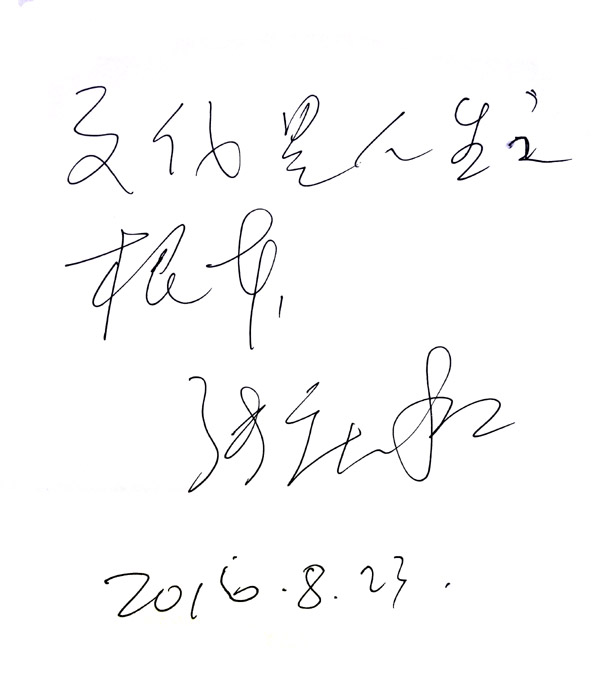 文化是人生之
根本,
2016.8.23.